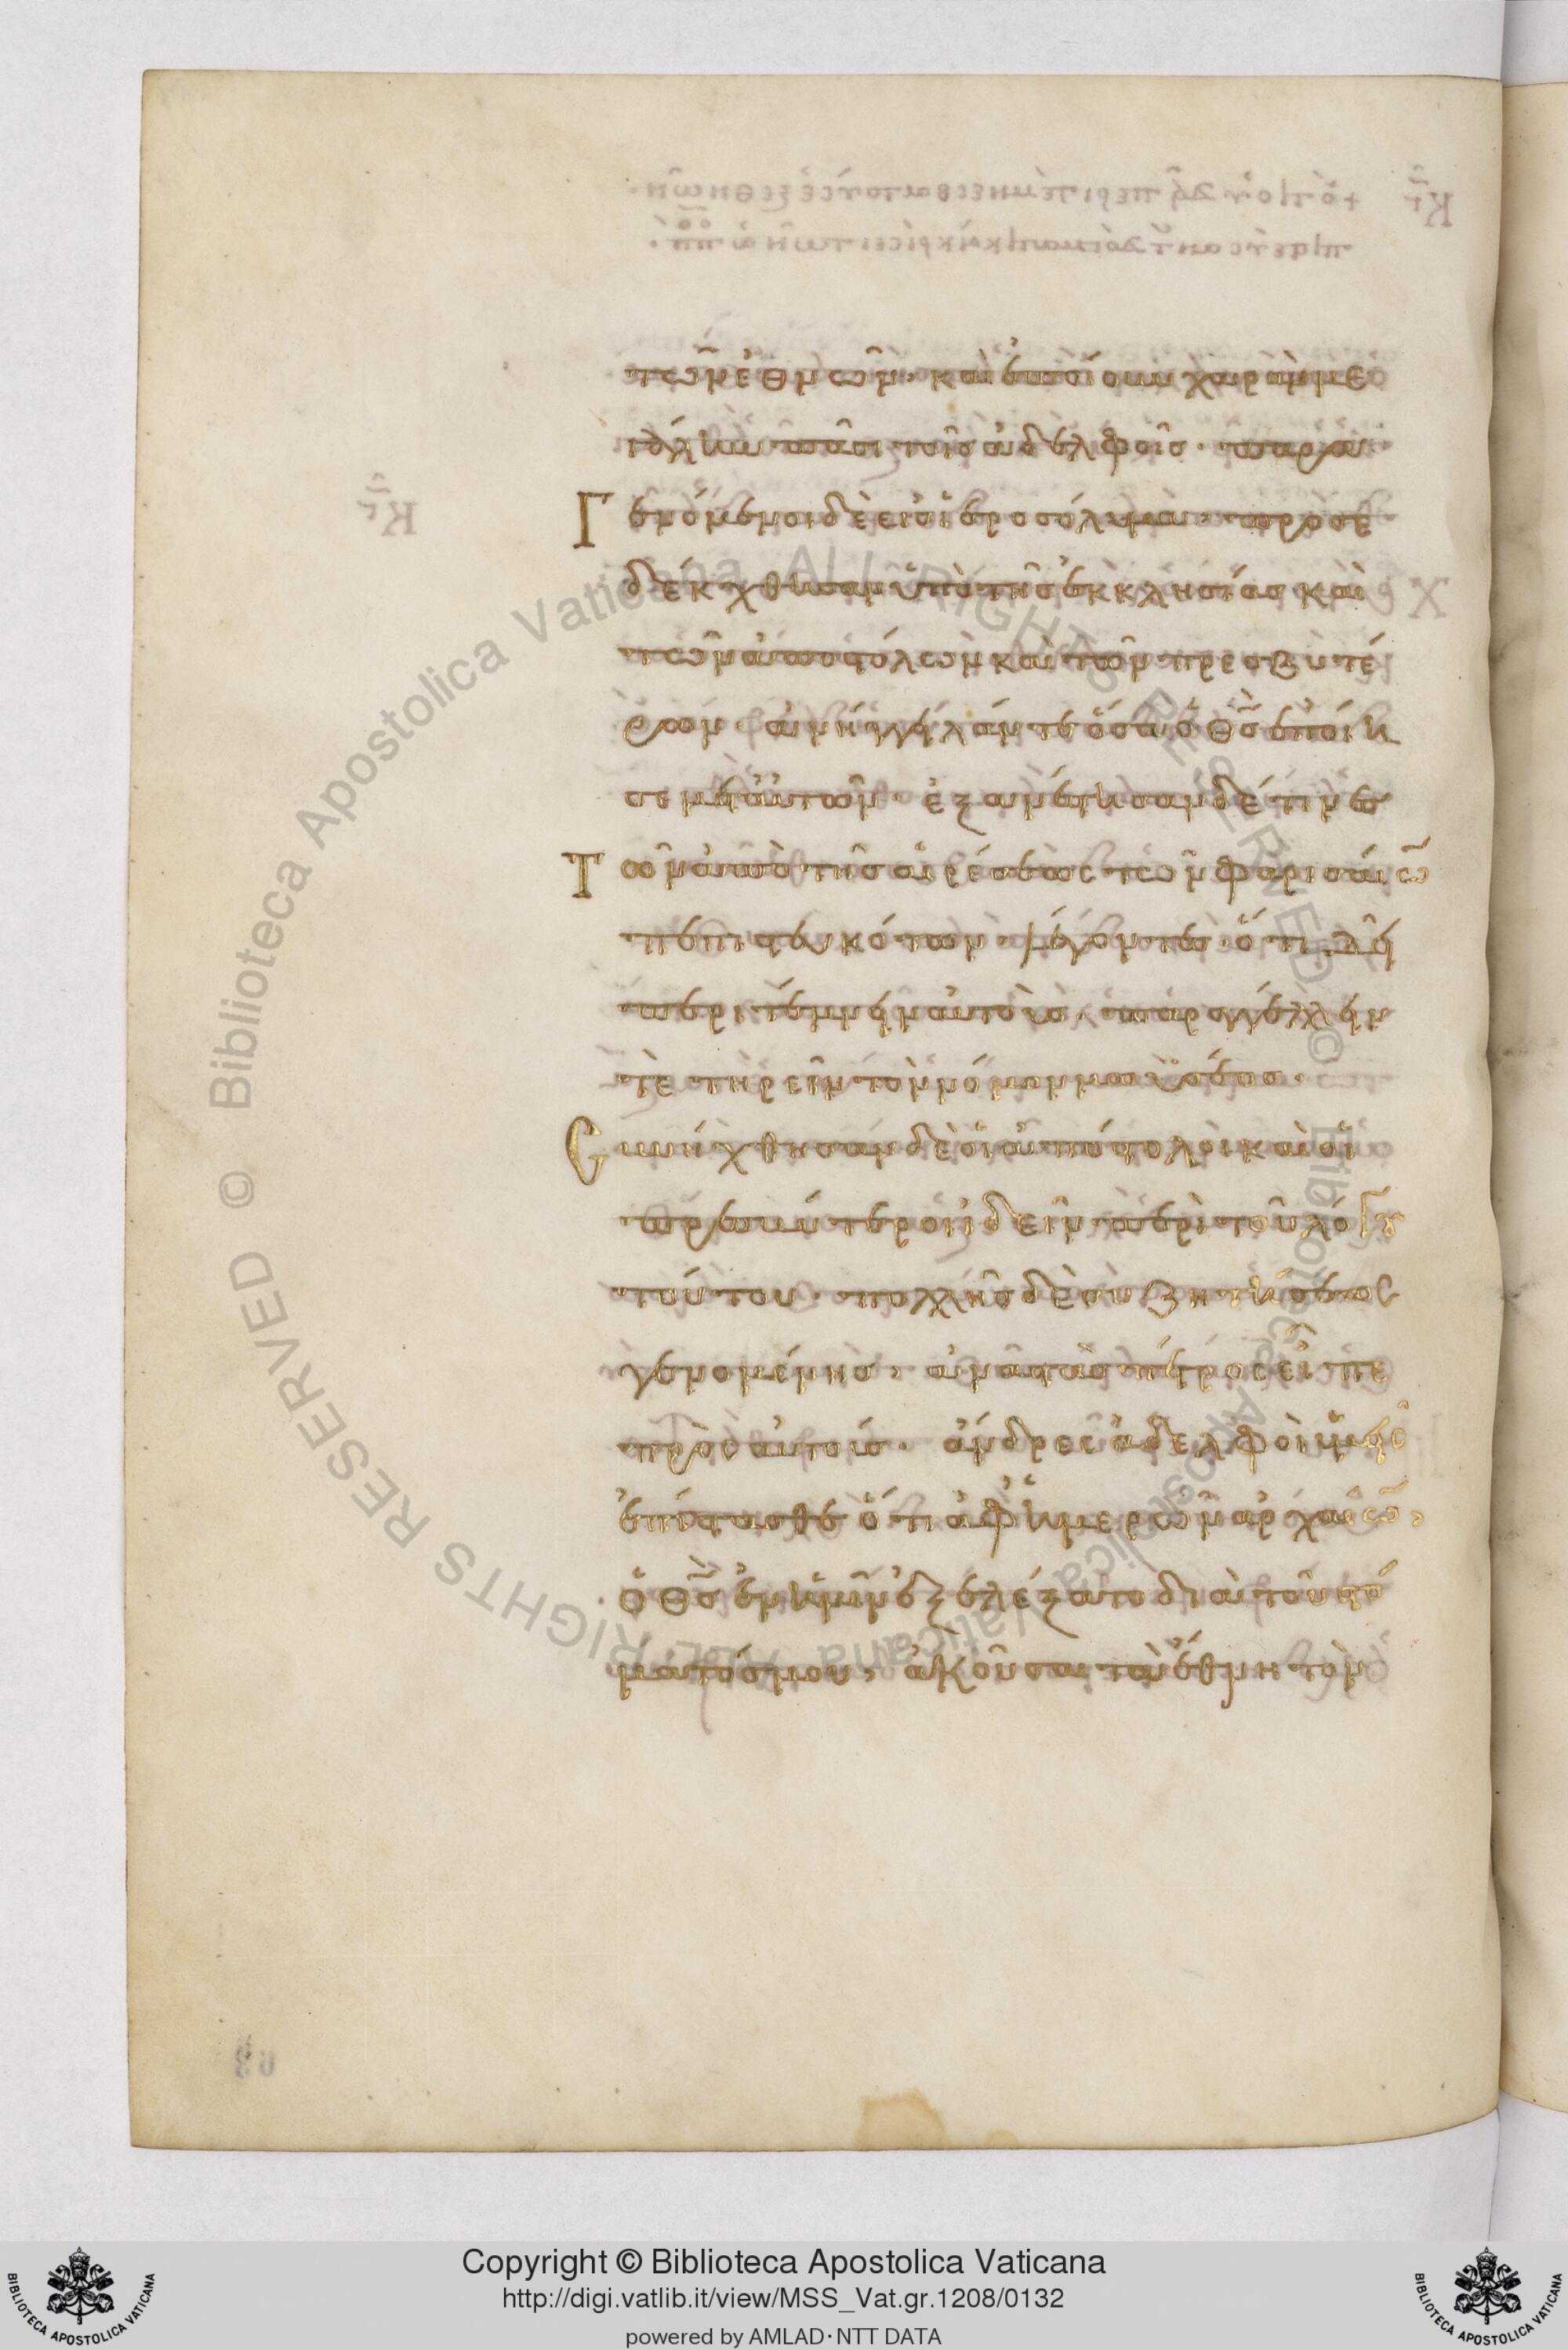 τῶν ἐθνῶν· καὶ ἐποίουν χαρὰν με
γάλην πᾶσι τοῖς ἀδελφοῖς· παρα
Γενόμενοι δὲ εἰς ἱεροσόλυμα· προσε
δέχθησαν ὑπὸ τῆς ἐκκλησίας καὶ
τῶν ἀποστόλων καὶ τῶν πρεσβυτέ
ρων· ἀνήγγειλάν τε ὅσα ὁ θς ἐποίη
σε μετ' αὐτῶν· ἐξανέστησαν δέ τινες
Τῶν ἀπὸ τῆς αἱρέσεως τῶν φαρισαίω
πεπιστευκότων· λέγοντες· ὅτι δεῖ
περιτέμνειν αὐτοὺς, παραγγέλλειν
τὲ τηρεῖν τὸν νόμον μωϋσέως·
Συνήχθησαν δὲ οἱ ἀπόστολοι καὶ οἱ
πρεσβύτεροι ἰδεῖν περὶ τοῦ λόγου
τούτου· πολλῆς δὲ συζητήσεως
γενομένης, ἀναστὰς πέτρος εἶπε
πρὸς αὐτούς· ἄνδρες ἀδελφοὶ ὑμεῖς
ἐπίστασθε ὅτι ἀφ' ἡμερῶν ἀρχαίω,
ὁ θς ἐν ἡμῖν ἐξελέξατο διὰ τοῦ στό
ματός μου, ἀκοῦσαι τὰ ἔθνη τὸν
© Biblioteca Apostolica Vaticana ALL RIGHTS RESERVED © Biblioteca Apostolica Vaticana ALL RIGHTS RESERVED
Copyright © Biblioteca Apostolica Vaticana
http://digi.vatlib.it/view/MSS_Vat.gr.1208/0132
powered by AMLAD·NTT DATA
BIBLIOTECA APOSTOLICA VATICANA
BIBLIOTECA APOSTOLICA VATICANA